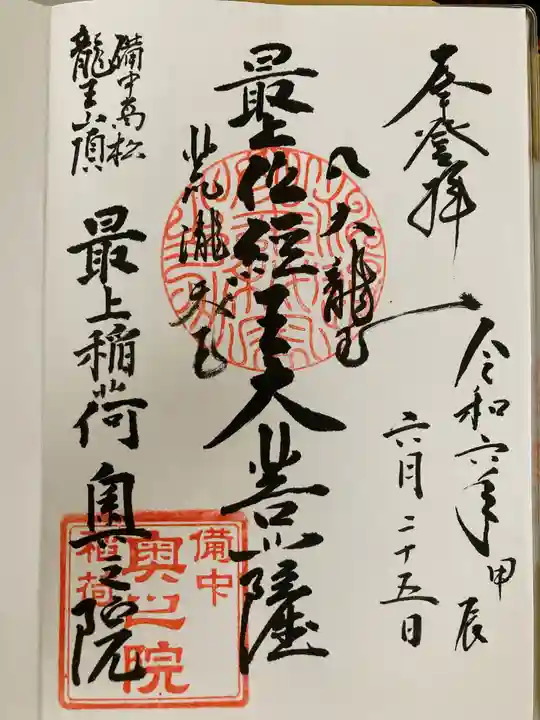 奉登拝
令和六年甲辰
六月二十五日
八大龍王
最上位経王大菩薩
荒瀧天王
備中高松
龍王山頂
最上稲荷奥之院
備中
奥之院
稲荷